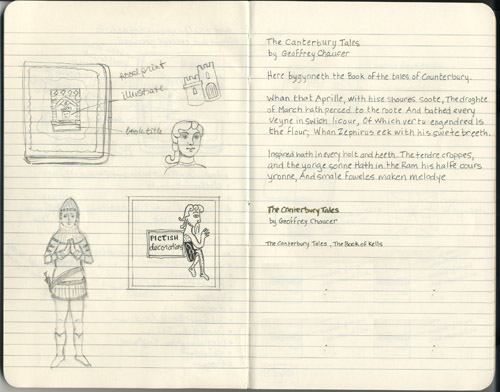 hand print
illustrate
book title
PICTISH
decoration
The Canterbury Tales
by Geoffrey Chaucer
Here bygynneth the Book of the tales of Caunterbury.
Whan that Aprille, with hise shoures soote, The droghte
of March hath perced to the roote And bathed every
veyne in swich licour, Of which vertu engendred Is
the flour; Whan Zephirus eek with his swete breeth.
Inspired hath in every holt and heeth. The tendre croppes,
and the yonge sonne Hath in the Ram his halfe cours
yronne, And smale foweles maken melodye
The Canterbury Tales
by Geoffrey Chaucer
The Canterbury Tales, The Book of Kells